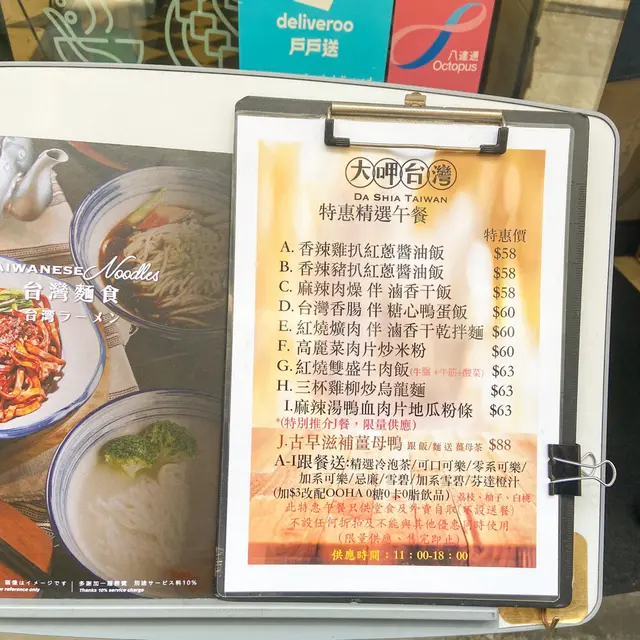 deliveroo
戶戶送
八達通
Octopus
TAIWANESE Noodles
台灣麵食
台湾ラーメン
大呷台灣
DA SHIA TAIWAN
特惠精選午餐
特惠價
A. 香辣雞扒紅蔥醬油飯 $58
B. 香辣豬扒紅蔥醬油飯 $58
C. 麻辣肉燥 伴 滷香干飯 $58
D. 台灣香腸 伴 糖心鴨蛋飯 $60
E. 紅燒爌肉 伴 滷香干乾拌麵 $60
F. 高麗菜肉片炒米粉 $60
G. 紅燒雙盛牛肉飯(牛腩+牛筋+酸菜) $63
H. 三杯雞柳炒烏龍麵 $63
I.麻辣湯鴨血肉片地瓜粉條 $63
*(特別推介J餐，限量供應)
J.古早滋補薑母鴨 跟飯/麵 送 薑母茶 $88
A-I跟餐送:精選冷泡茶/可口可樂/零系可樂/
加系可樂/忌廉/雪碧/加系雪碧/芬達橙汁
(加$3改配OOHA 0糖0卡0脂飲品) 荔枝、柚子、白桃
此特惠午餐只供堂食及外賣自取(不設送餐)
不設任何折扣及不能與其他優惠同時使用
(限量供應、售完即止)
供應時間：11：00-18：00
調味はイメージです
for reference only
多謝加一服務費 別途サービス料10%
Thanks 10% service charge